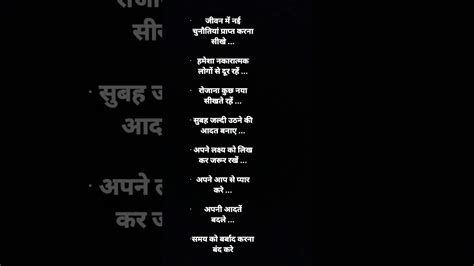 · जीवन में नई
चुनौतियां प्राप्त करना
सीखे ...
· हमेशा नकारात्मक
लोगों से दूर रहें ...
· रोजाना कुछ नया
सीखते रहें ...
· सुबह जल्दी उठने की
आदत बनाए ...
· अपने लक्ष्य को लिख
कर जरूर रखें ...
· अपने आप से प्यार
करे ...
· अपनी आदतें
बदले ...
समय को बर्बाद करना
बंद करे